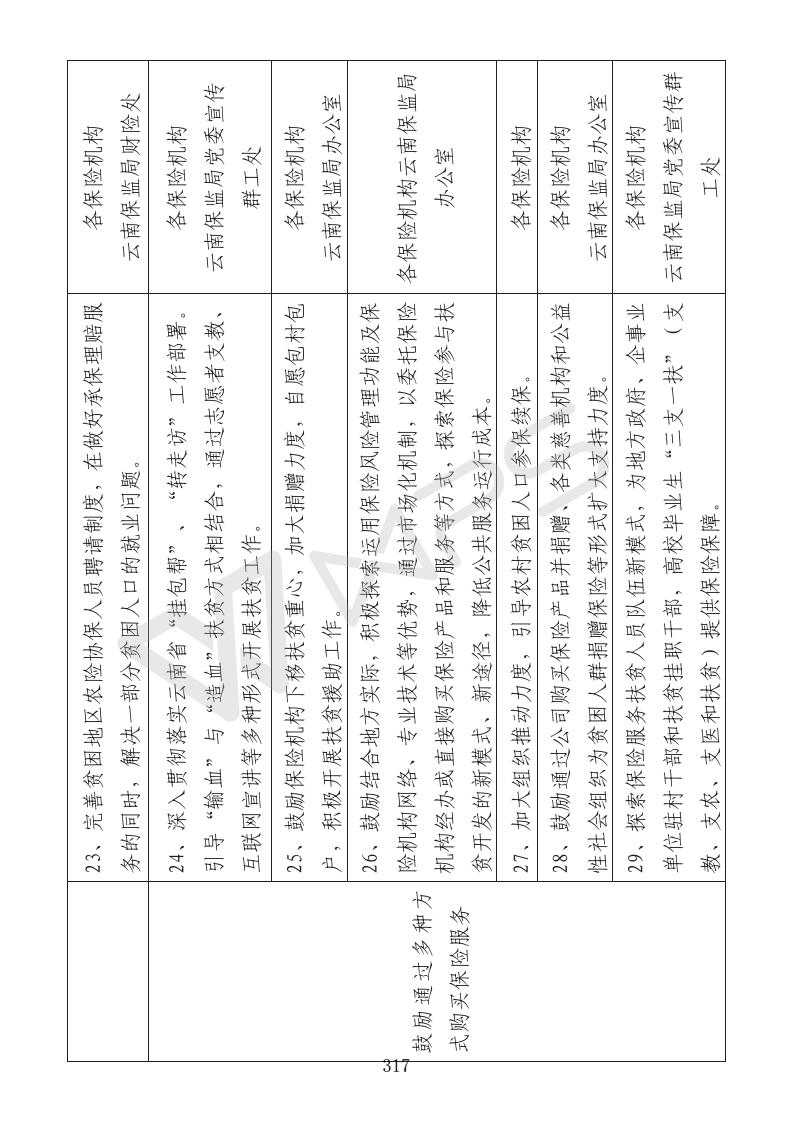 23、完善贫困地区农险协保人员聘请制度，在做好承保理赔服
务的同时，解决一部分贫困人口的就业问题。
各保险机构
云南保监局财险处
鼓励通过多种方
式购买保险服务
24、深入贯彻落实云南省“挂包帮”、“转走访”工作部署。
引导“输血”与“造血”扶贫方式相结合，通过志愿者支教、
互联网宣讲等多种形式开展扶贫工作。
各保险机构
云南保监局党委宣传
群工处
25、鼓励保险机构下移扶贫重心，加大捐赠力度，自愿包村包
户，积极开展扶贫援助工作。
各保险机构
云南保监局办公室
26、鼓励结合地方实际，积极探索运用保险风险管理功能及保
险机构网络、专业技术等优势，通过市场化机制，以委托保险
机构经办或直接购买保险产品和服务等方式，探索保险参与扶
贫开发的新模式、新途径，降低公共服务运行成本。
各保险机构云南保监局
办公室
27、加大组织推动力度，引导农村贫困人口参保续保。
各保险机构
28、鼓励通过公司购买保险产品并捐赠、各类慈善机构和公益
性社会组织为贫困人群捐赠保险等形式扩大支持力度。
各保险机构
云南保监局办公室
29、探索保险服务扶贫人员队伍新模式，为地方政府、企事业
单位驻村干部和扶贫挂职干部，高校毕业生“三支一扶”（支
教、支农、支医和扶贫）提供保险保障。
各保险机构
云南保监局党委宣传群
工处
317
WPS